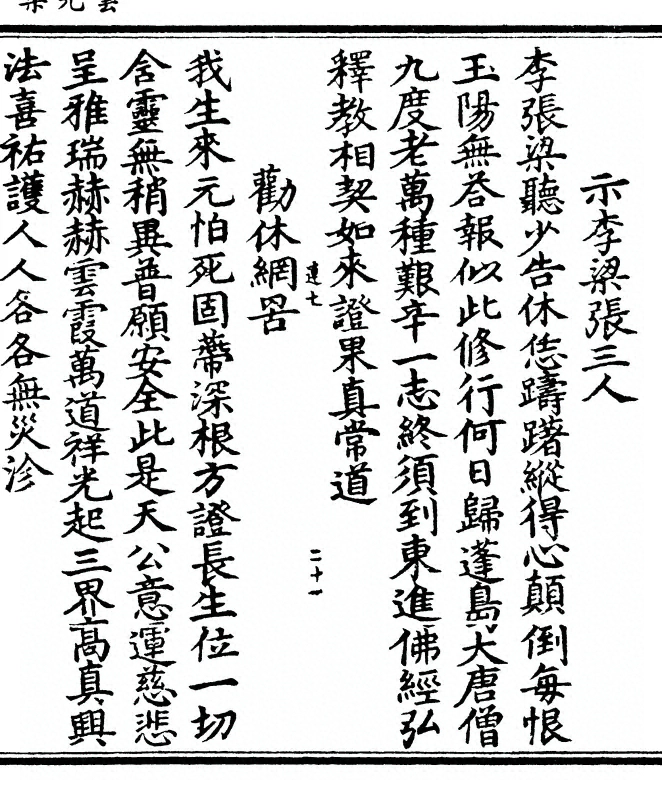 示李梁張三人
李張梁聽少告休恁躊躇縱得心顛倒每恨
玉陽無荅報似此修行何日歸蓬島大唐僧
九度老萬種艱辛一志終須到東進佛經弘
釋教相契如來證果真常道
勸休網罟
達七
二十一
我生來元怕死固蔕深根方證長生位一切
含靈無稍異普願安全此是天公意運慈悲
呈雅瑞赫赫雲霞萬道祥光起三界高真興
法喜祐護人人各各無災沴